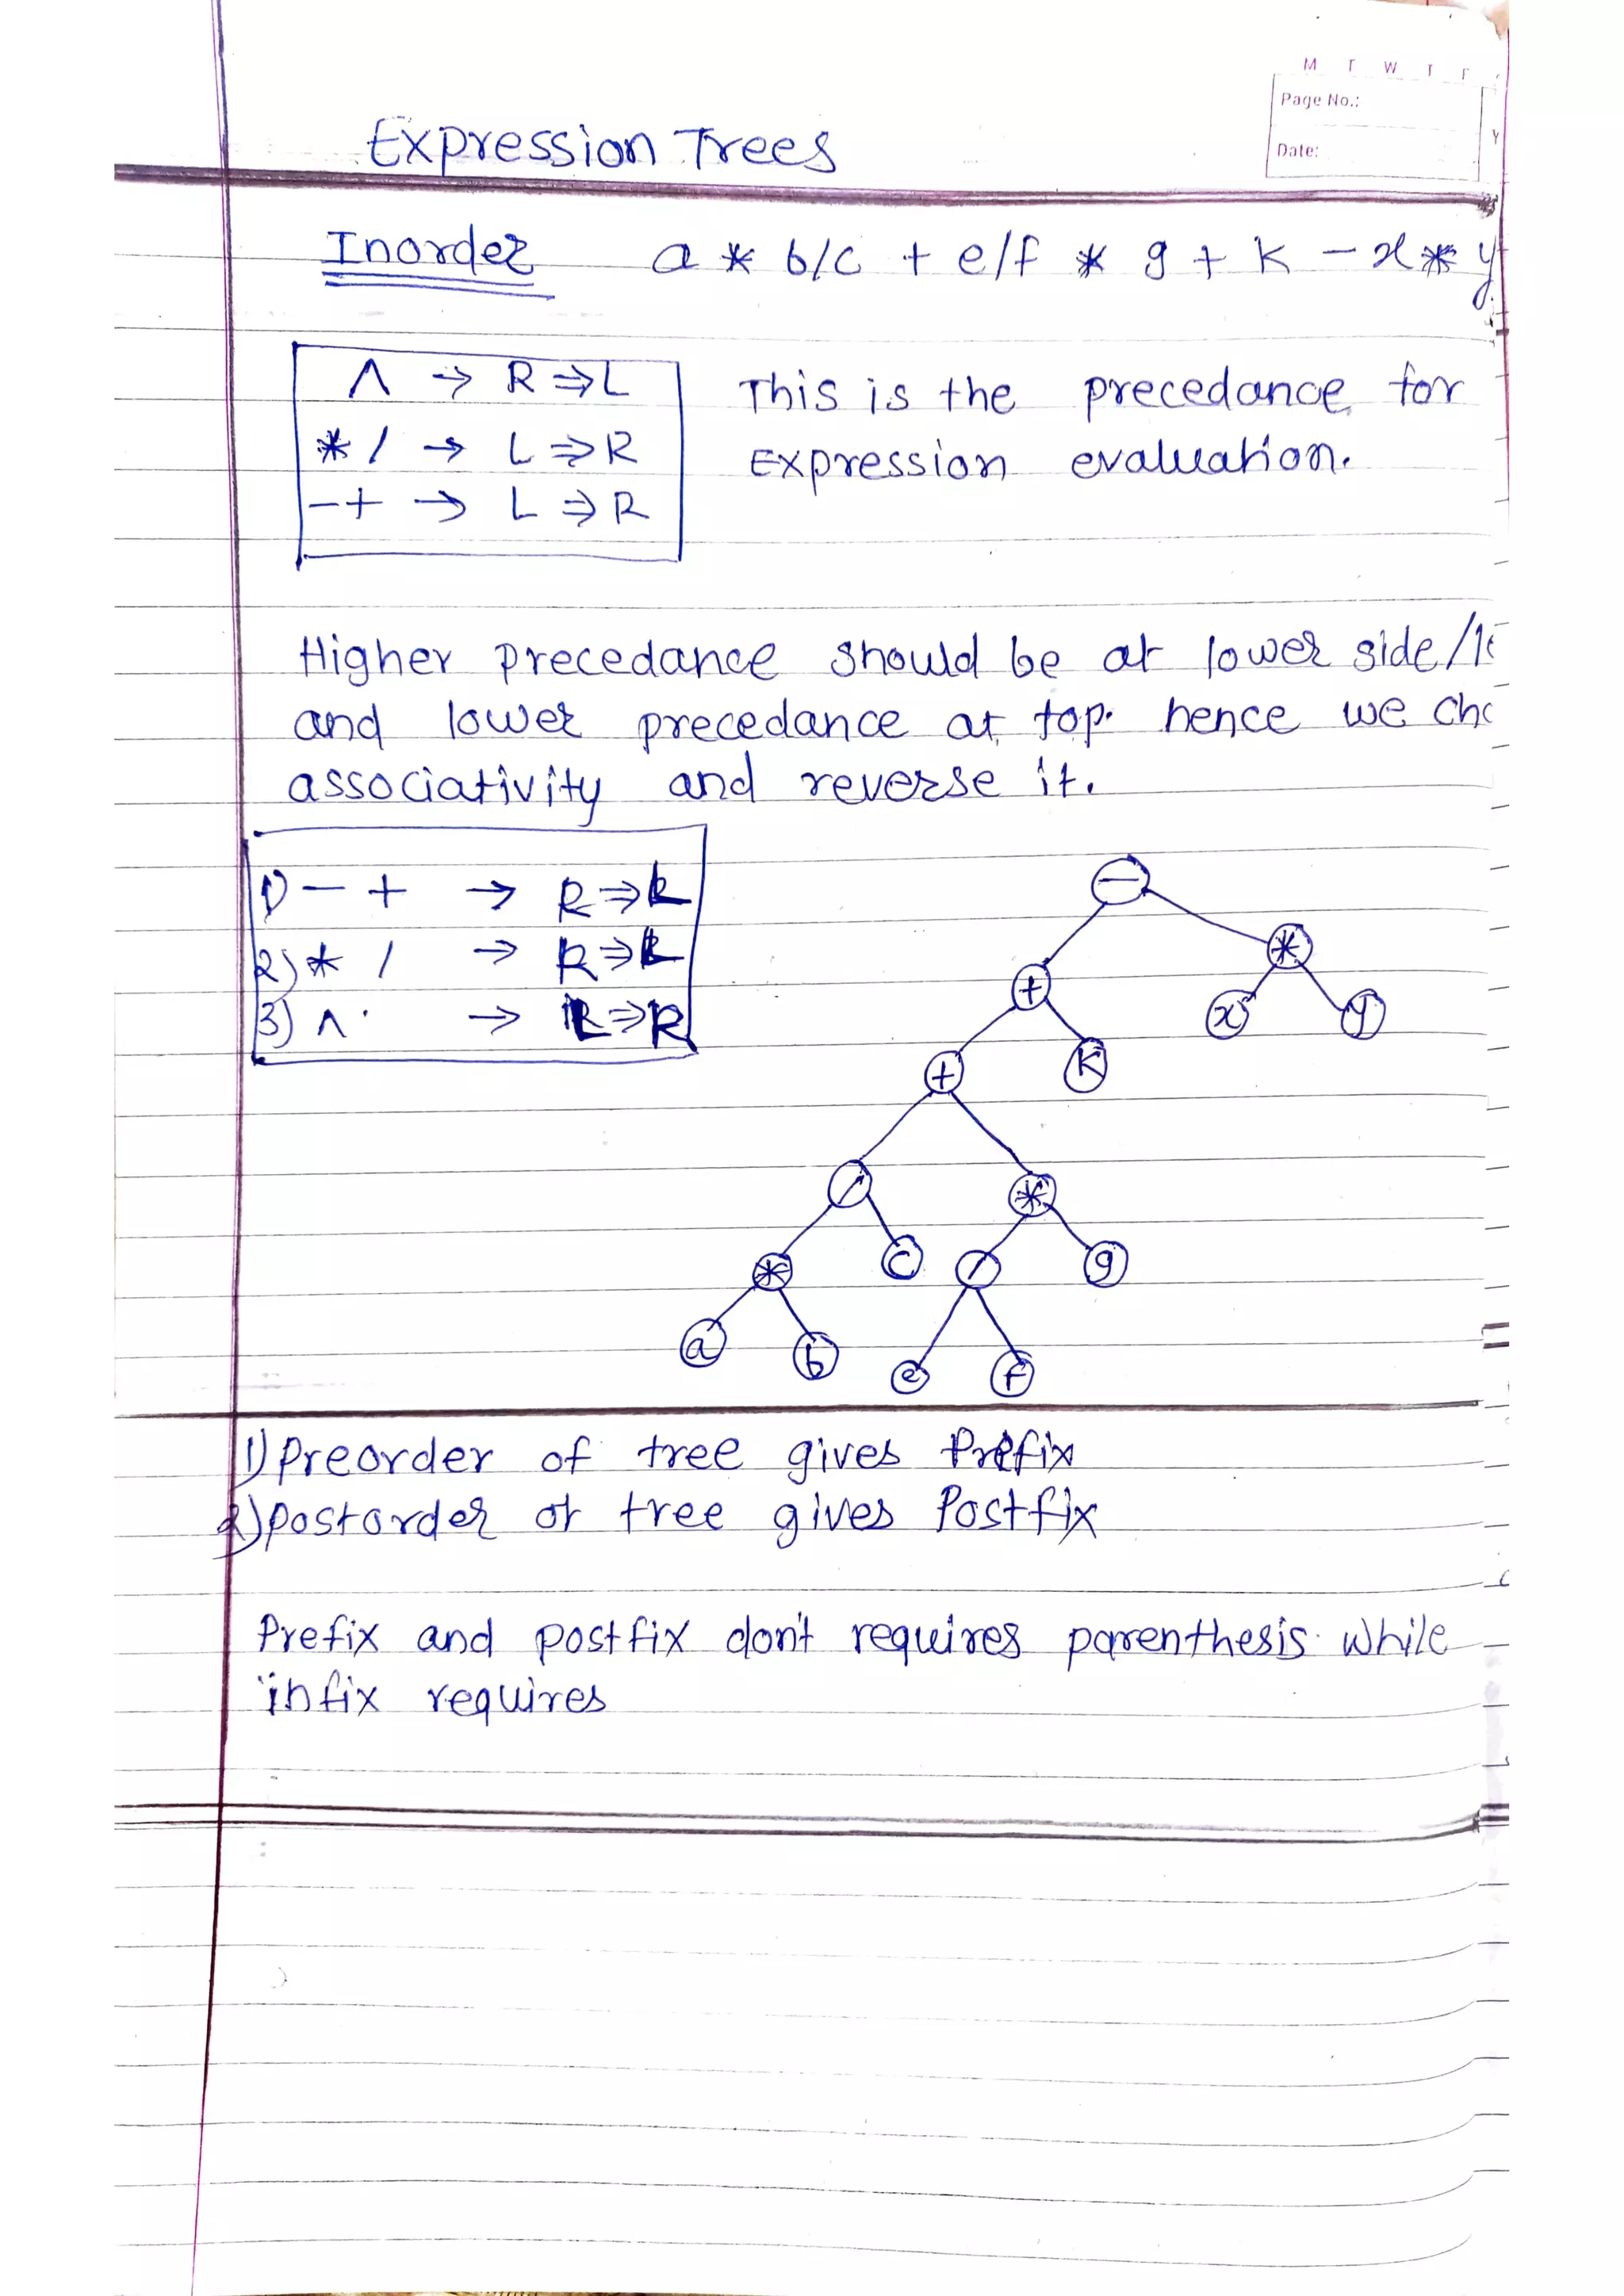 M T W T F
Page No.:
Y
Date:
Expression Trees
Inorder a * b/c + e/f * g + k - x * y
^ → R ⇒ L
* / → L ⇒ R
- + → L ⇒ R
This is the precedance for
Expression evaluation.
Higher precedance should be at lower side/
and lower precedance at top. hence we
associativity and reverse it.
1) - + → R ⇒ L
2) * / → R ⇒ L
3) ^ → L ⇒ R
-
*
+
x y
+ k
/ *
* c / g
a b e f
1) Preorder of tree gives Prefix
2) postorder of tree gives Postfix
Prefix and postfix don't requires parenthesis while
infix requires